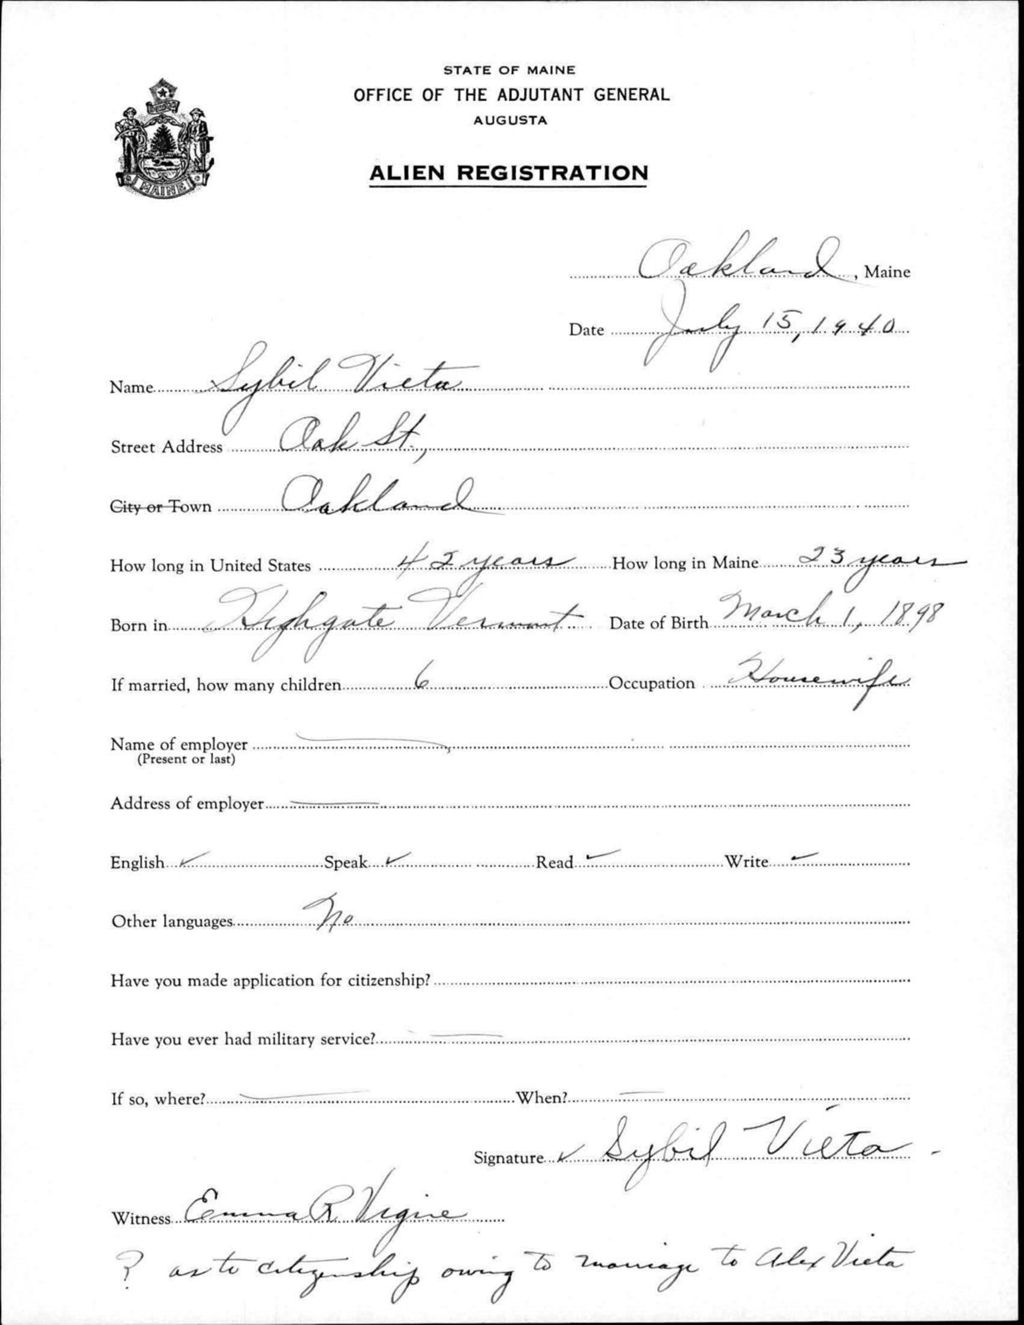 STATE OF MAINE
OFFICE OF THE ADJUTANT GENERAL
AUGUSTA
ALIEN REGISTRATION
MAINE
Oakland, Maine
Date July 15, 1940
Name Sybil Vieta
Street Address Oak St,
City or Town Oakland
How long in United States 42 years How long in Maine 23 years
Born in Highgate Vermont Date of Birth March 1, 1898
If married, how many children 6 Occupation Housewife
Name of employer
(Present or last)
Address of employer
English ✓ Speak ✓ Read ✓ Write ✓
Other languages No
Have you made application for citizenship?
Have you ever had military service?
If so, where? When?
Signature ✓ Sybil Vieta
Witness Emma R Vigue
? as to citizenship owing to marriage to Alex Vieta